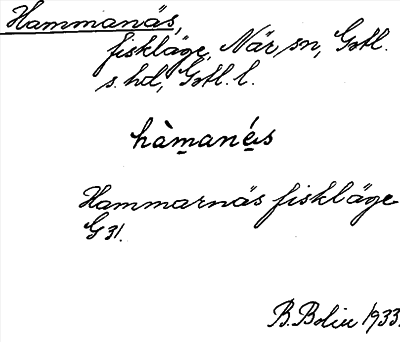 Hammanäs,
fiskläge, När, sn, Gotl.
s. hd, Gotl. l.
hàmanés
Hammarnäs fiskläge
G 31.
B. Bolin 1933.